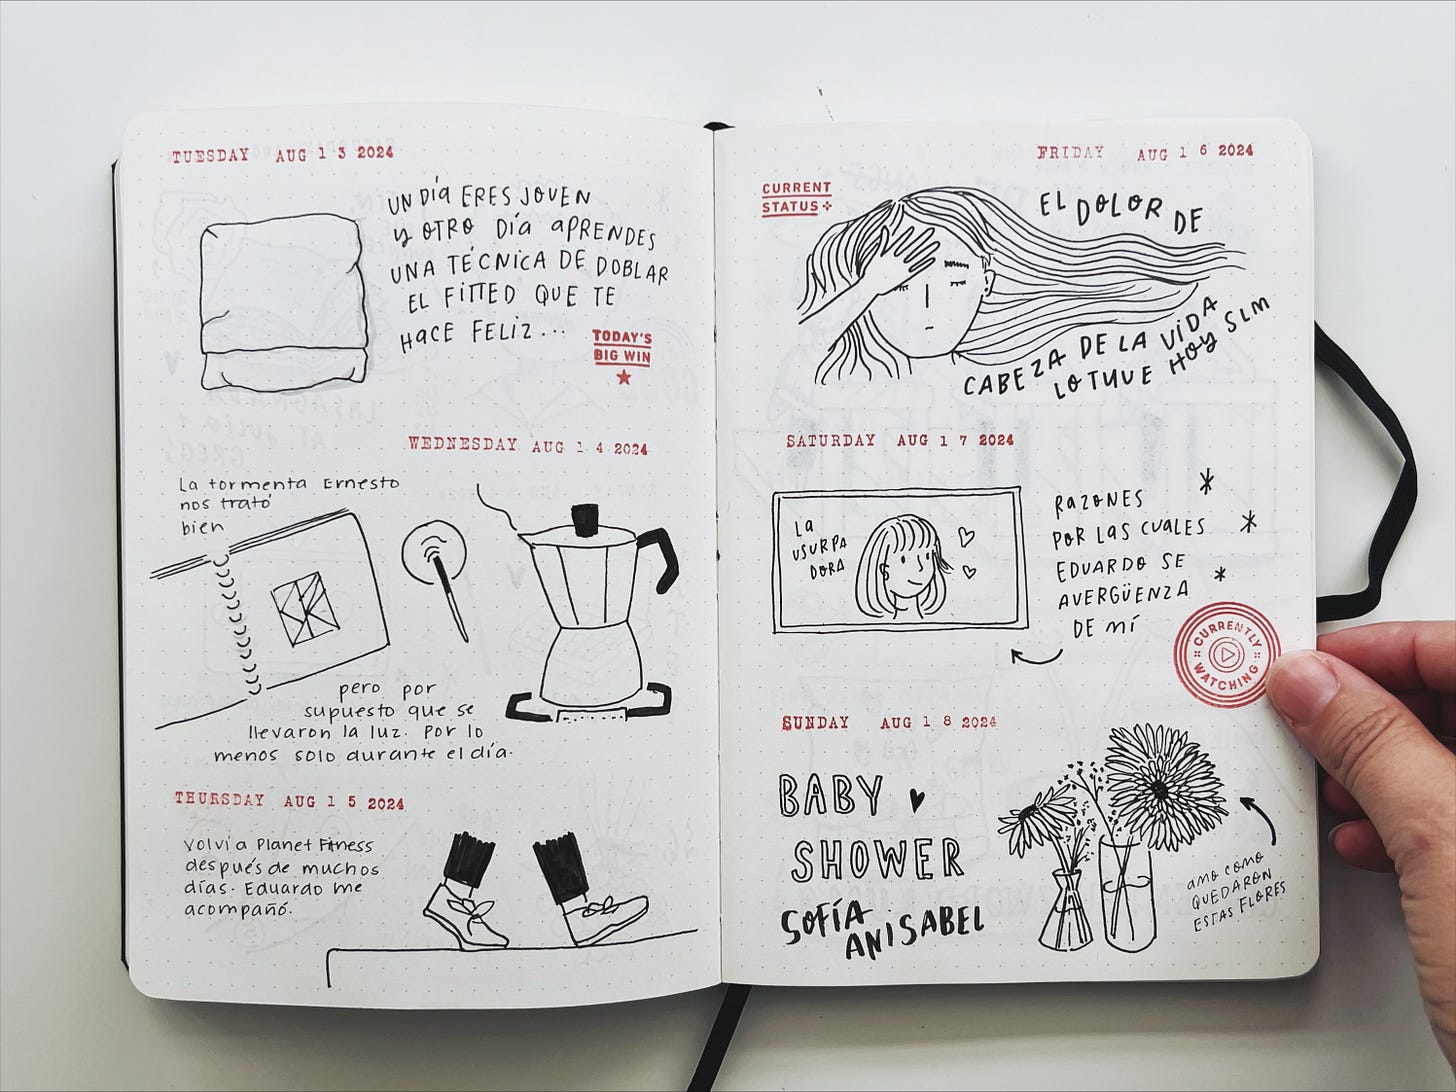 TUESDAY AUG 13 2024
UN Día ERES JOVEN
y OTRO Día aPRENDES
UNA TÉCNICA DE DOBLAR
EL FITTED QUE TE
HACE FELIZ...
TODAY'S
BIG WIN
WEDNESDAY AUG 14 2024
La tormenta Ernesto
nos trató
bien
pero por
supuesto que se
llevaron la luz. Por lo
menos solo durante el día.
THURSDAY AUG 15 2024
Volví a Planet Fitness
después de muchos
días. Eduardo me
acompañó.
FRIDAY AUG 16 2024
CURRENT
STATUS
EL DOLOR DE
CABEZA DE LA VIDA
LO TUVE HOY SLM
SATURDAY AUG 17 2024
La
USURPA
DORA
RAZONES
POR LAS CUALES
EDUARDO SE
AVERGÜENZA
DE MÍ
CURRENTLY
WATCHING
SUNDAY AUG 18 2024
BABY
SHOWER
SOFÍA
ANISABEL
AMO COMO
QUEDARON
ESTAS FLORES